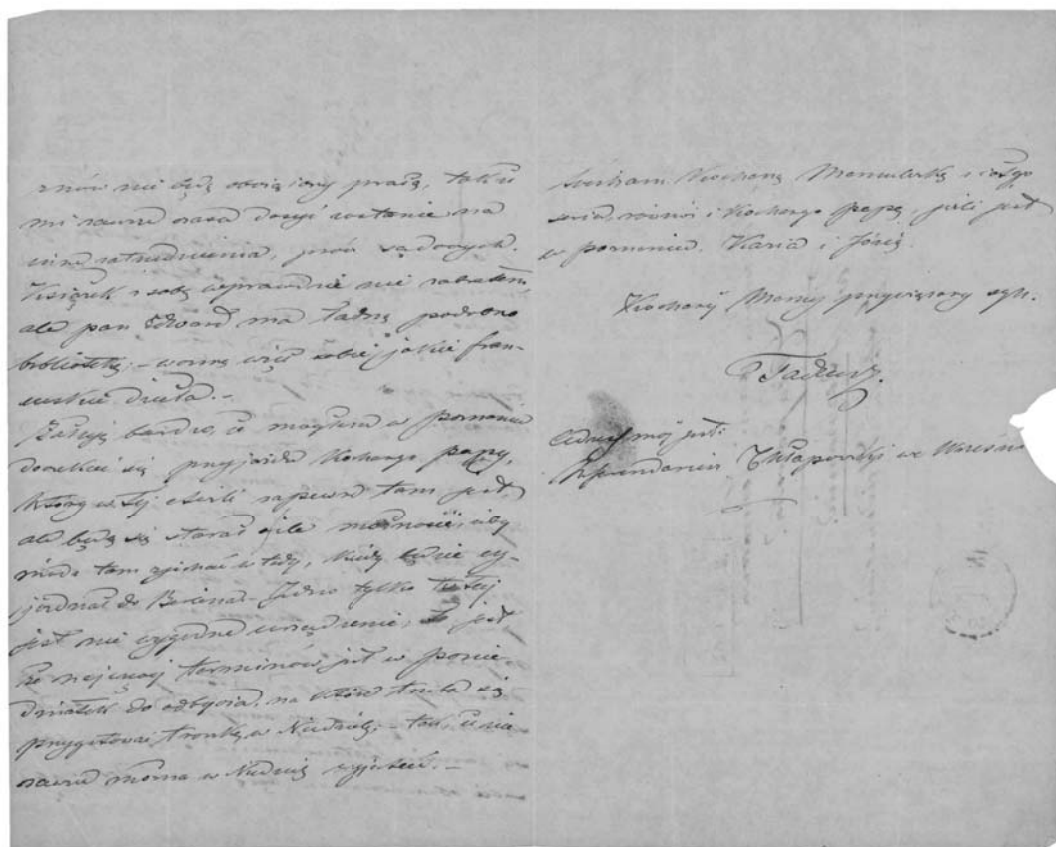 znów nie będę obciążony pracą, tak że
mi zawsze czasu dosyć zostanie na
inne zatrudnienia, prócz sądowych.
Książek z sobą wprawdzie nie zabrałem
ale pan Edward ma ładną podobno
bibliotekę; – wezmę więc sobie jakie fran-
cuskie dzieła. –
Żałuję bardzo, że mogłem w Poznaniu
doczekać się przyjazdu Kochanego papy,
który w tej chwili zapewne tam jest,
ale będę się starał ile możności, aby
módz tam zjechać wtedy, kiedy będzie
jechał do Berlina – Jedno tylko tutaj
jest nie wygodne urządzenie, to jest
że najwięcej terminów jest w ponie-
działek do odbycia, na które trzeba się
przygotować trochę w Niedzielę; – tak, że nie
zawsze można w Niedzielę wyjechać. –
Ściskam Kochaną Mamuleczkę z całego
serca, również i Kochanego papę, jeśli jest
w Poznaniu, Karia i Józię.
Kochanej Mamy przywiązany syn.
Tadeusz.
Adres mój jest:
Chłapowski we Wrześni